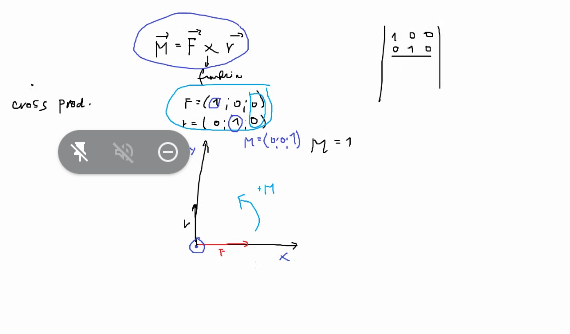 M = F x r
function
cross prod.
F = (1; 0; 0)
r = (0; 1; 0)
M = (0; 0; 1)
M = 1
1 0 0
0 1 0
y
+M
r
F
x